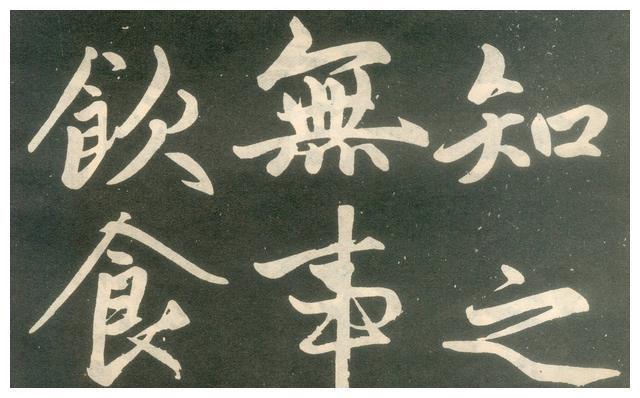 知之
無事
飲食